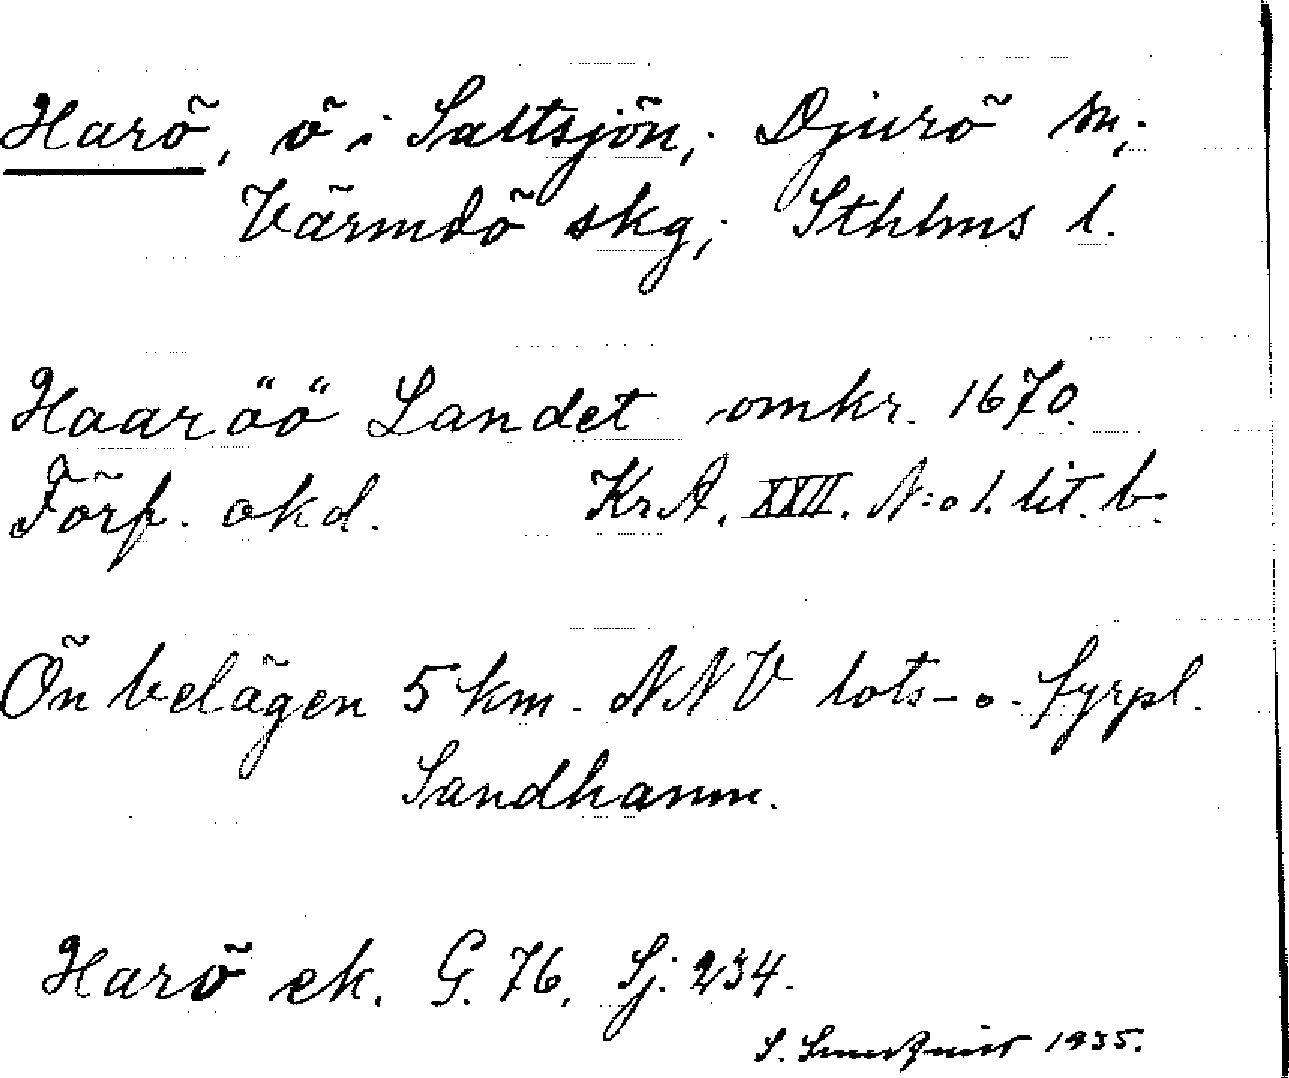 Harö, ö i Saltsjön; Djurö sn;
Värmdö skg; Sthlms l.
Haaröö Landet omkr. 1670.
Förf. okd. Kr.A. XXII. N:o 1. lit. b.
Ön belägen 5 km. NNV lots- o. fyrpl.
Sandhamn.
Harö ek. G. 76. Sj: 234.
S. 1935.